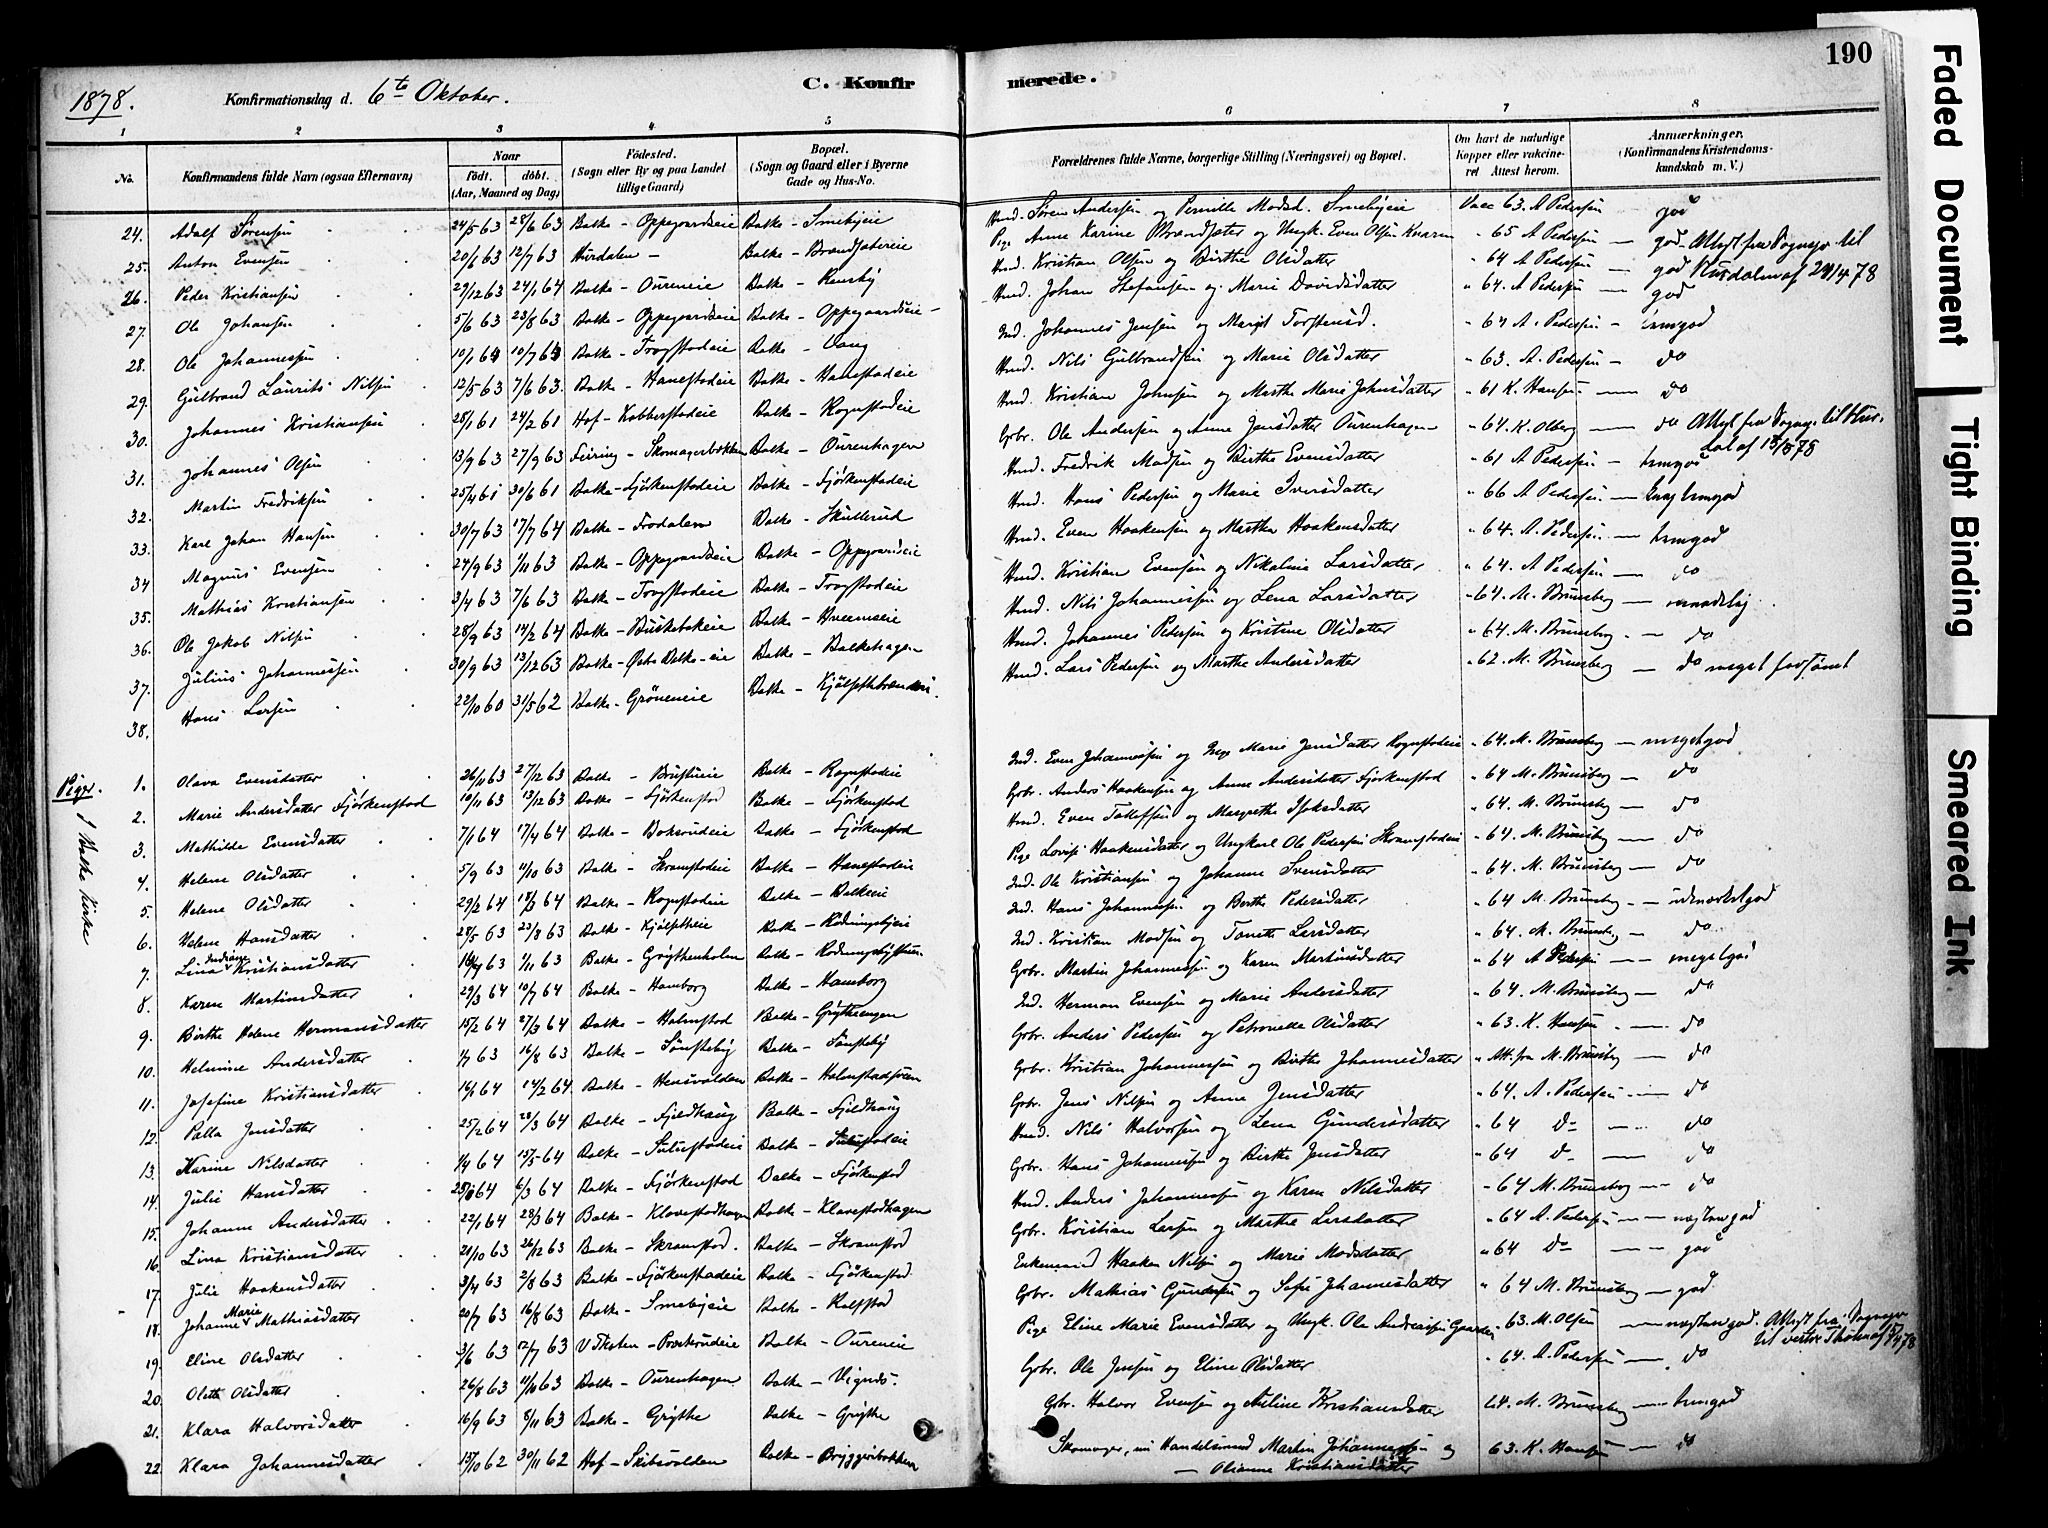 190
1878. Konfirmationsdag d. 6te Oktober. C. Konfirmerede.
1 2 3 4 5 6 7 8
No. Konfirmandens fulde Navn (ogsaa Efternavn) Naar født. døbt. (Aar, Maaned og Dag) Fødested. (Sogn eller By og paa Landet tillige Gaard) Bopæl. (Sogn og Gaard eller i Byerne Gade og Hus-No. Forældrenes fulde Navne, borgerlige Stilling (Næringsvei) og Bopæl. Om havt de naturlige Kopper eller vakcineret Attest herom. Anmærkninger. (Konfirmandens Kristendomskundskab m. V.)
24. Adolf Sørensen 24/5 63 28/6 63 Balke - Oppegaardseie Balke - Smebyeie Hmd. Søren Andersen og Pernille Madsd. Smebyeie Vacc 63. A Pedersen - god
25. Anton Evensen 20/1 63 12/7 63 Hurdalen - Balke - Brandsætereie Pige Anne Karine og Ungk. Even Olsen " 65 A Pedersen - god. Attest fra Sognepr. til Hurdalen af 24/4 78
26. Peder Kristiansen 29/12 63 24/1 64 Balke - Oureneie Balke - Hmd. Kristian Olsen og Birthe Olsdatter " 64 A Pedersen - god
27. Ole Johansen 5/6 63 23/8 63 Balke - Oppegaardseie Balke - Oppegaardseie Hmd. Johan Stefansen og Marie Davidsdatter " 64. A Pedersen - god
28. Ole Johannessen 10/1 64 10/7 64 Balke - Trogstadeie Balke - Vang Ind. Johannes Jensen og Margit Torstensd. " 64 A. Pedersen - temgod
29. Gulbrand Laurits Nilsen 12/5 63 7/6 63. Balke - Hanestadeie Balke - Hanestadeie Hmd. Nils Gulbrandsen og Marie Olsdatter " 63. A. Pedersen - do
30. Johannes Kristiansen 28/1 61 24/2 61 Hof - Kobberstadeie Balke - Rognstadeie Hmd. Kristian Johnsen og Marthe Marie Johnsdatter " 61 K. Hansen - do
31. Johannes Olsen 13/9 63 27/9 63 Feiring - Skomagerbakken Balke - Ourenhagen Grbr. Ole Andersen og Anne Jensdatter Ourenhagen " 64. K. Olberg - do Attest fra Sognepr. til Hurdal af 18/5 78
32. Martin Fredriksen 25/4 61 30/6 61 Balke - Fjørkenstadeie Balke - Fjørkenstadeie Hmd. Fredrik Madsen og Birthe Evensdatter " 61 A Pedersen - temgod
33. Karl Johan Hansen 30/7 63 17/7 64 Balke - Frodalen Balke - Skullerud Hmd. Hans Pedersen og Marie Iversdatter " 66 A Pedersen - temgod
34 Magnus Evensen 24/9 63 1/11 63 Balke - Oppegaardseie Balke - Oppgaardseie Hmd. Even Haakensen og Marthe Haakensdatter " 64. A. Pedersen - temgod
35. Mathias Kristiansen 3/4 63 7/6 63 Balke - Trogstadeie Balke - Trogstadeie Hmd. Kristian Evensen og Nikoline Larsdatter " 64. A Pedersen - do
36. Ole Jakob Nilsen 28/9 63 14/2 64 Balke - Balke - Hveemseie Hmd. Nils Johannessen og Lena Larsdatter " 64. M. Brunsberg - maadelig
37. Julius Johannessen 30/9 63 13/12 63 Balke - Balke-eie Balke - Balkehagen Hmd. Johannes Pedersen og Kristine Olsdatter " 64. M. Brunsberg - do
38. Hans Larsen 22/10 60 31/5 62 Balke - Gröneneie Balke - Hmd. Lars Pedersen og Marthe Andersdatter " 62. M. Brunsberg - do meget forsømt
Piger. I Balke Kirke
1. Olava Evensdatter 26/11 63 27/12 63 Balke - Balke - Rognstadeie Ind. Even Johannessen og Inge Marie Jensdatter Rognstadeie " 64. M. Brunsberg - megetgod
2. Marie Andersdatter Fjørkenstad 19/11 63 13/12 63 Balke - Fjørkenstad Balke - Fjørkenstad Grbr. Anders Haakensen og Anne Andersdatter Fjørkenstad " 64 M. Brunsberg - do
3. Mathilde Evensdatter 7/1 64 17/4 64 Balke - Balke - Fjørkenstad Hmd. Even Tollefsen og Margrethe Isaksdatter " 64. M. Brunsberg - do
4. Helene Olsdatter 5/9 63 11/10 63 Balke - Skramstadeie Balke - Hanestadeie Pige Lovise Haakensdatter og Ungkarl Ole Pedersen Skramstadeie " 64. M. Brunsberg - do
5. Helene Olsdatter 29/2 64 18/3 64 Balke - Rognstadeie Balke - Balkeeie Ind. Ole Kristiansen og Johanne Svensdatter " 64. M. Brunsberg - do
6. Helene Hansdatter 28/5 63 23/8 63 Balke - Kjølsetheie Balke - Rødningsbyeie Ind. Hans Johannessen og Berthe Pedersdatter " 64 M. Brunsberg - udmærketgod
7. Lina Indiane Kristiansdatter 16/9 63 1/11 63 Balke - Grythenholen Balke - Ind. Kristian Madsen og Tonette Larsdatter " 64. M. Brunsberg - do
8. Karen Martinsdatter 29/3 64 10/7 64 Balke - Hamborg Balke - Hamborg Grbr. Martin Johannessen og Karen Martinsdatter " 64 A Pedersen - megetgod
9. Birthe Helene Hermansdatter 15/2 64 27/3 64 Balke - Holmstad Balke - Grytheengen Ind. Herman Evensen og Marie Andersdatter " 64. M. Brunsberg - do
10. Helmine Andersdatter 1/7 63 16/8 63 Balke - Sønsteby Balke - Sønsteby Grbr. Anders Pedersen og Petronelle Olsdatter " 63. K. Hansen - do
11. Josefine Kristiansdatter 16/1 64 14/2 64 Balke - Hensvolden Balke - Holmstadsveen Grbr. Kristian Johannessen og Birthe Johannesdatter " Att. fra M. Brunsberg - do
12. Palla Jensdatter 25/2 64 28/3 64 Balke - Fjeldhaug Balke - Fjeldhaug Grbr. Jens Nilsen og Anne Jensdatter " 64. A. Pedersen - do
13. Karine Nilsdatter 1/4 64 15/5 64 Balke - Sulustadeie Balke - Sulustadeie Hmd. Nils Halvorsen og Lena Gundersdatter " 64 do - do
14. Julie Hansdatter 25/1 64 6/3 64 Balke - Fjørkenstad Balke - Fjørkenstad Grbr. Hans Johannessen og Birthe Jensdatter " 64 do - do
15. Johanne Andersdatter 22/1 64 28/3 64 Balke - Klavestadhagen Balke - Klavestadhagen Hmd. Anders Johannessen og Karen Nilsdatter " 64 M. Brunsberg - do
16. Lina Kristiansdatter 21/10 63 26/12 63 Balke - Skramstad. Balke - Skramstad Grbr. Kristian Larsen og Marthe Larsdatter " 64 A. Pedersen - næstengod
17. Julie Haakensdatter 3/4 63 2/8 63 Balke - Fjørkenstadeie Balke - Fjørkenstad Enkemand Haaken Nilsen og Marie Madsdatter " 64 do - god
18. Johanne Marie Mathiasdatter 20/7 63 16/8 63 Balke - Smebyeie Balke - Rolfstad Grbr. Mathias Gundersen og Sofie Johannesdatter " 64 M. Brunsberg - god.
19. Eline Olsdatter 3/6 63 12/7 63 V Thoten - Præsterudeie Balke - Oureneie Pige Eline Marie Evensdatter og Ungk. Ole Andreassen " 63. M. Olsen - næstengod. Attest fra Sognepr. til vestre Thoten af 15/4 78
20. Oleth Olsdatter 26/8 63 11/10 63 Balke - Ourenhagen Balke - Vignds. Grbr. Ole Jensen og Eline Olsdatter " 64. A. Pedersen - do
21. Klara Halvorsdatter 16/9 63 8/11 63 Balke - Grythe Balke - Grythe Grbr. Halvor Evensen og Auline Kristiansdatter 64. M. Brunsberg - temgod
22 Klara Johannesdatter 15/10 62 30/11 62 Hof - Skibsvolden Balke - Bryggeribakken Skomager, nu Handelsmand Martin Johannessen og 63. K. Hansen - do
- Olianne Kristiansdatter
Faded Document
Tight Binding
Smeared Ink